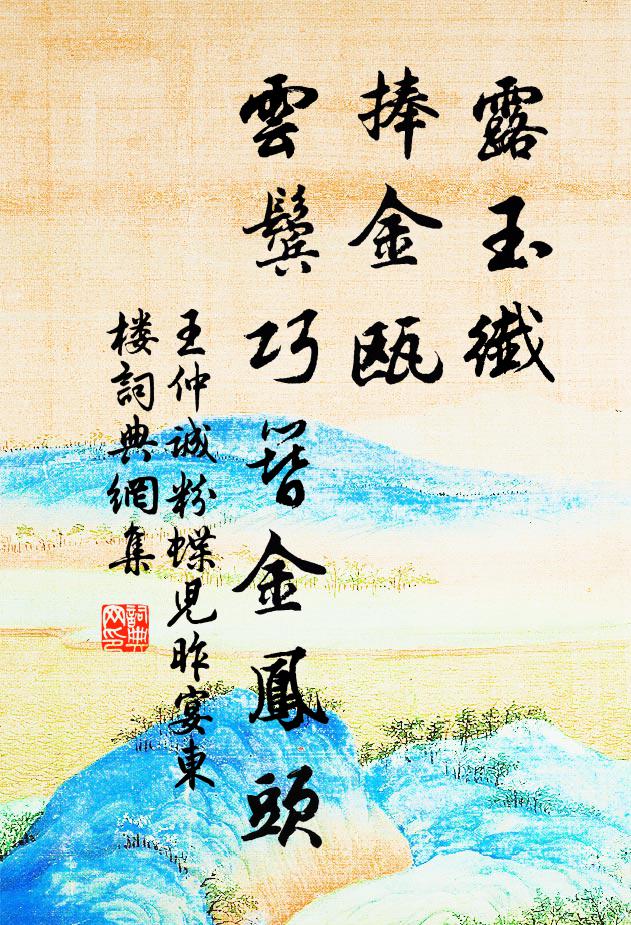 露玉纖
捧金甌
雲鬓巧簪金鳳頭
王仲诚粉蝶児昨宴東
楼詞典網集
詞典網印